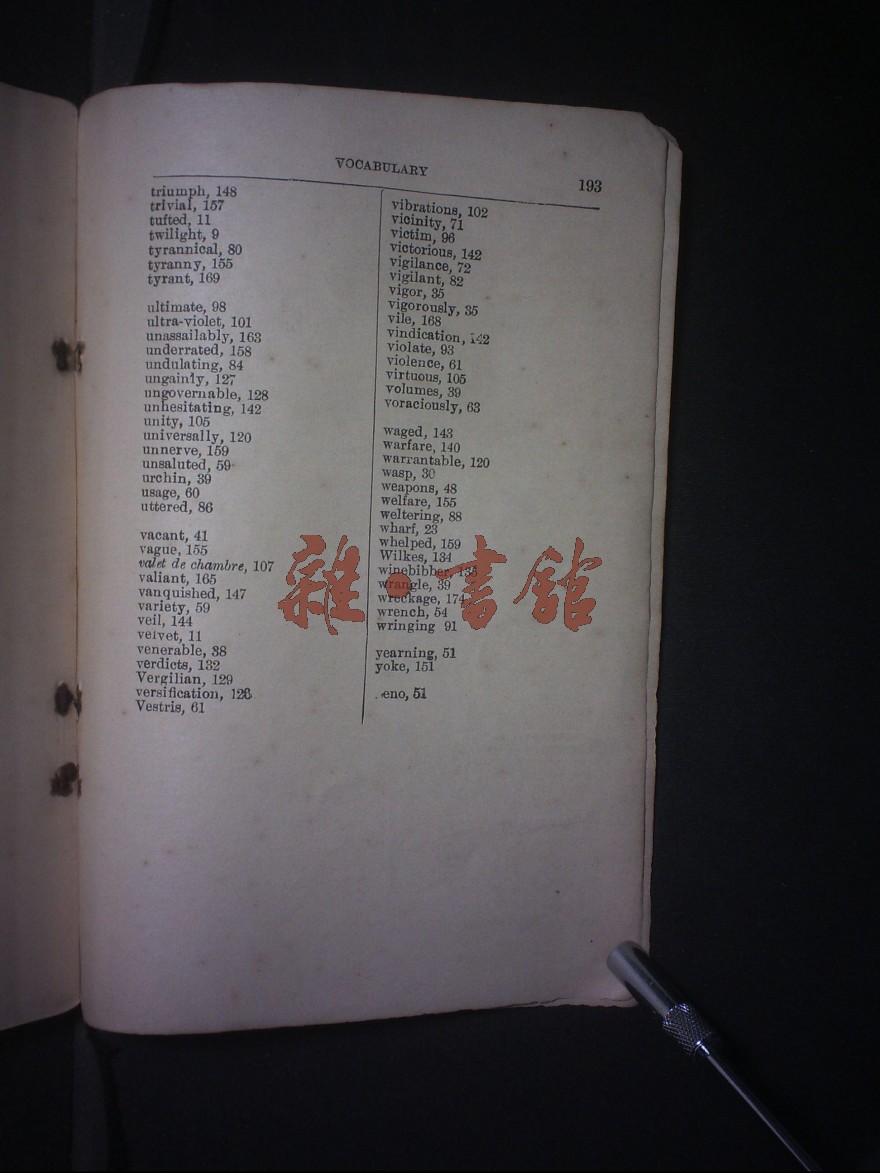 VOCABULARY
193
triumph, 148
trivial, 157
tufted, 11
twilight, 9
tyrannical, 80
tyranny, 155
tyrant, 169
ultimate, 98
ultra-violet, 101
unassailably, 163
underrated, 158
undulating, 84
ungainly, 127
ungovernable, 128
unhesitating, 142
unity, 105
universally, 120
unnerve, 159
unsaluted, 59
urchin, 39
usage, 60
uttered, 86
vacant, 41
vague, 155
valet de chambre, 107
valiant, 165
vanquished, 147
variety, 59
veil, 144
velvet, 11
venerable, 38
verdicts, 132
Vergilian, 129
versification, 128
Vestris, 61
vibrations, 102
vicinity, 71
victim, 96
victorious, 142
vigilance, 72
vigilant, 82
vigor, 35
vigorously, 35
vile, 168
vindication, 142
violate, 93
violence, 61
virtuous, 105
volumes, 39
voraciously, 63
waged, 143
warfare, 140
warrantable, 120
wasp, 30
weapons, 48
welfare, 155
weltering, 88
wharf, 23
whelped, 159
Wilkes, 134
winebibber, 135
wrangle, 39
wreckage, 174
wrench, 54
wringing 91
yearning, 51
yoke, 151
eno, 51
雜·書館